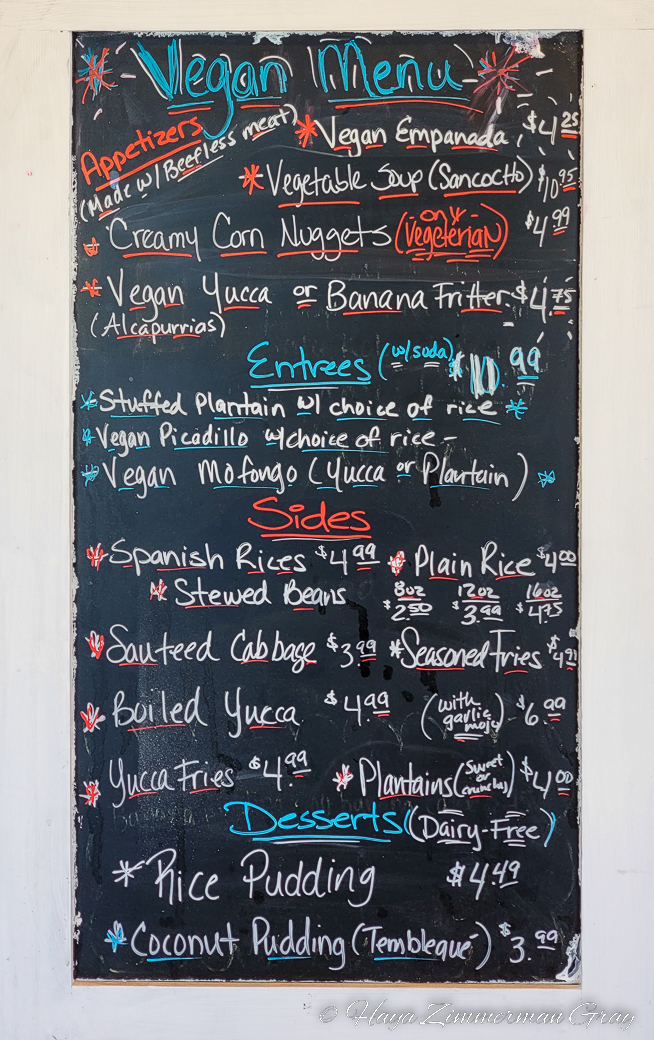 Vegan Menu
Appetizers
(Made w/ Beefless meat)
Vegan Empanada $4.25
Vegetable Soup (Sancocho) $10.95
Creamy Corn Nuggets (only vegeterian) $4.99
Vegan Yucca or Banana Fritter $4.75
(Alcapurrias)
Entrees (w/soda) $10.99
Stuffed Plantain w/ choice of rice
Vegan Picadillo w/choice of rice -
Vegan Mofongo (Yucca or Plantain)
Sides
Spanish Rices $4.99 Plain Rice $4.00
Stewed Beans 8oz $2.50 12oz $3.99 16oz $4.75
Sauteed Cabbage $3.99 Seasoned Fries $4.99
Boiled Yucca $4.99 (with garlic mojo) $6.99
Yucca Fries $4.99 Plantains (sweet or crunchy) $4.00
Desserts (Dairy-Free)
Rice Pudding $4.49
Coconut Pudding (Tembleque) $3.99
© Haya Zimmerman Gray